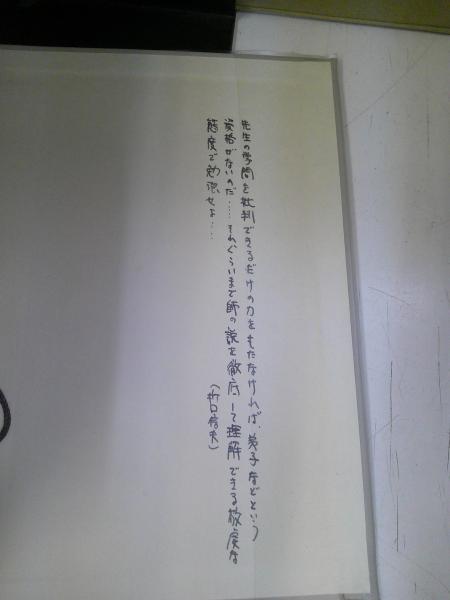 先生の学問を批判できるだけの力をもたなければ、弟子などという
資格がないのだ……それぐらいまで師の説を徹底して理解できる敬虔な
態度で勉強せよ……
(折口信夫)